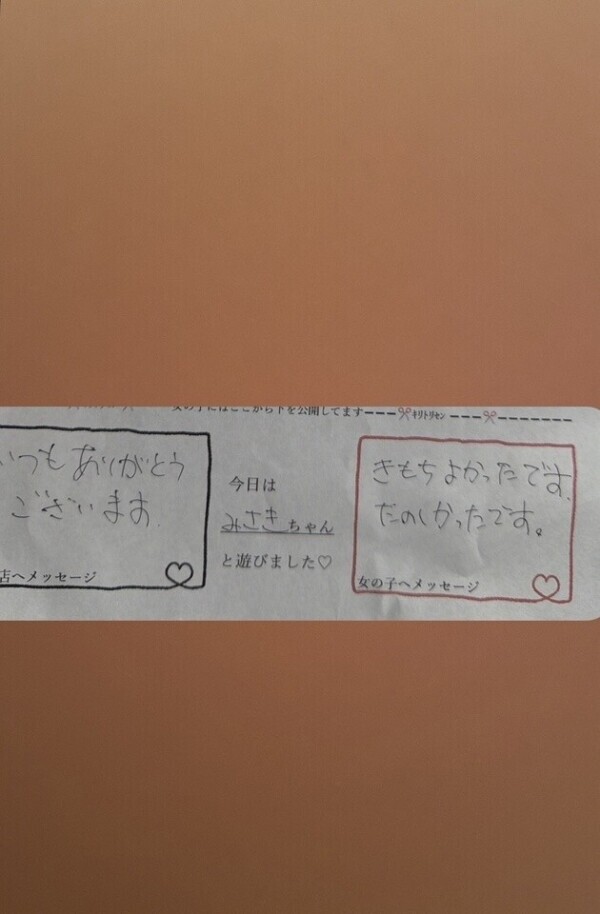 女の子にはここから下を公開してます
キリトリセン
いつもありがとう
ございます
店へメッセージ
今日は
みさきちゃん
と遊びました♡
きもちよかったです。
たのしかったです。
女の子へメッセージ